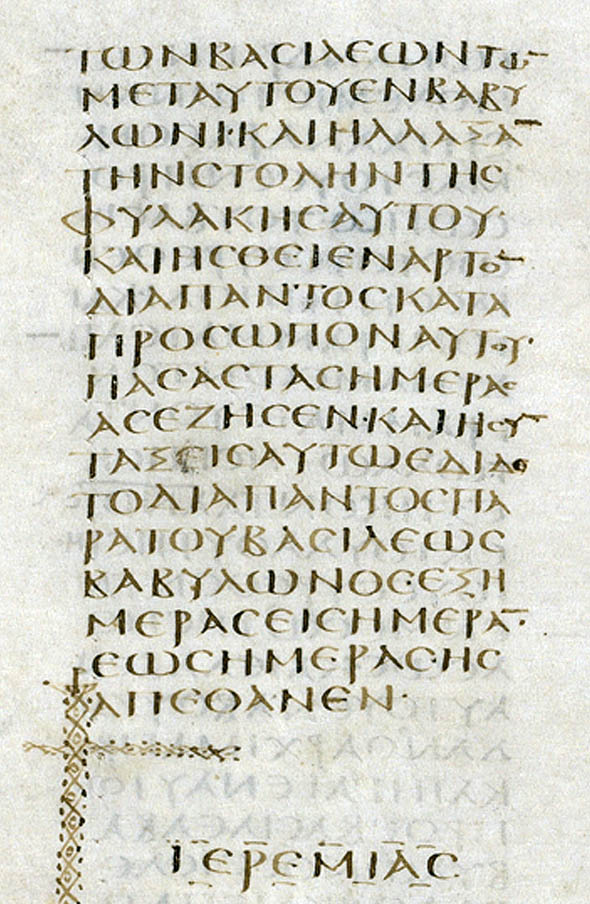 ΤΩΝΒΑϹΙΛΕΩΝΤΩ̅
ΜΕΤΑΥΤΟΥΕΝΒΑΒΥ
ΛΩΝΙ·ΚΑΙΗΛΛΑΞΑ̅
ΤΗΝϹΤΟΛΗΝΤΗϹ
ΦΥΛΑΚΗϹΑΥΤΟΥ·
ΚΑΙΗϹΘΕΙΕΝΑΡΤΟ̅
ΔΙΑΠΑΝΤΟϹΚΑΤΑ
ΠΡΟϹΩΠΟΝΑΥΤΟΥ·
ΠΑϹΑϹΤΑϹΗΜΕΡΑϹ
ΑϹΕΖΗϹΕΝ·ΚΑΙΗϹΥ̅
ΤΑΞΕΙϹΑΥΤΩΕΔΙΔΟ
ΤΟΔΙΑΠΑΝΤΟϹΠΑ
ΡΑΤΟΥΒΑϹΙΛΕΩϹ
ΒΑΒΥΛΩΝΟϹ·ΕΞΗ
ΜΕΡΑϹΕΙϹΗΜΕΡΑ̅·
ΕΩϹΗΜΕΡΑϹ·ΗϹ
ΑΠΕΘΑΝΕΝ·
ΙΕΡΕΜΙΑϹ